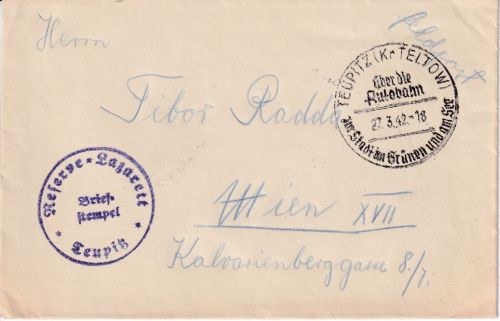 Herrn
Feldpost
TEUPITZ (Kr TELTOW)
über die
Autobahn
27.3.42.-18
zur Stadt im Grünen und am See
Tibor Radda
Reserve-Lazarett
Brief-
stempel
* Teupitz *
Wien XVII
Kalvarienberggasse 8/7.